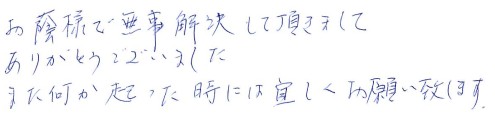 お蔭様で無事解決して頂きまして
ありがとうございました
また何か起った時には宜しくお願い致します.